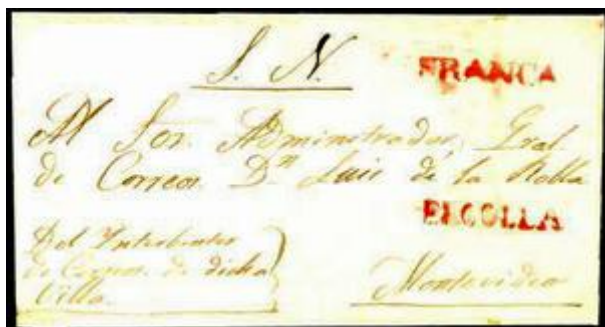 S. N.
FRANCA
Al Sor. Administrador Gral.
de Correos Dn Luis de la Robla
Del
de Correos de dicha
Villa.
Montevideo